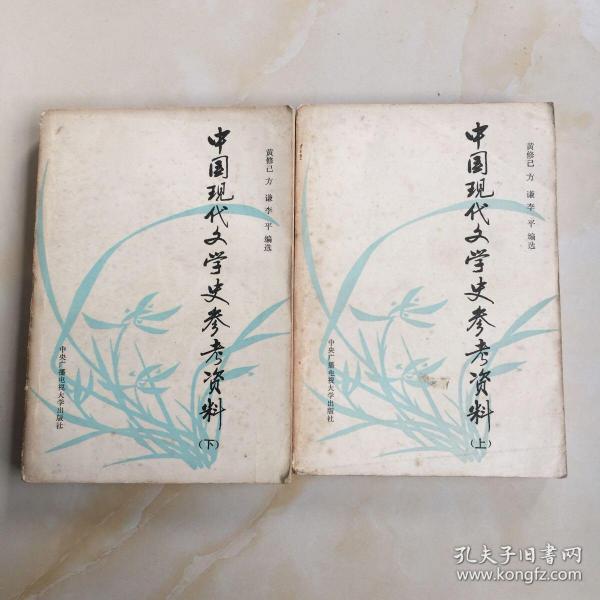 中国现代文学史参考资料
(下)
黄修己 方 谦 李 平 编选
中央广播电视大学出版社
中国现代文学史参考资料
(上)
黄修己 方 谦 李 平 编选
中央广播电视大学出版社
孔夫子旧书网
www.kongfz.com